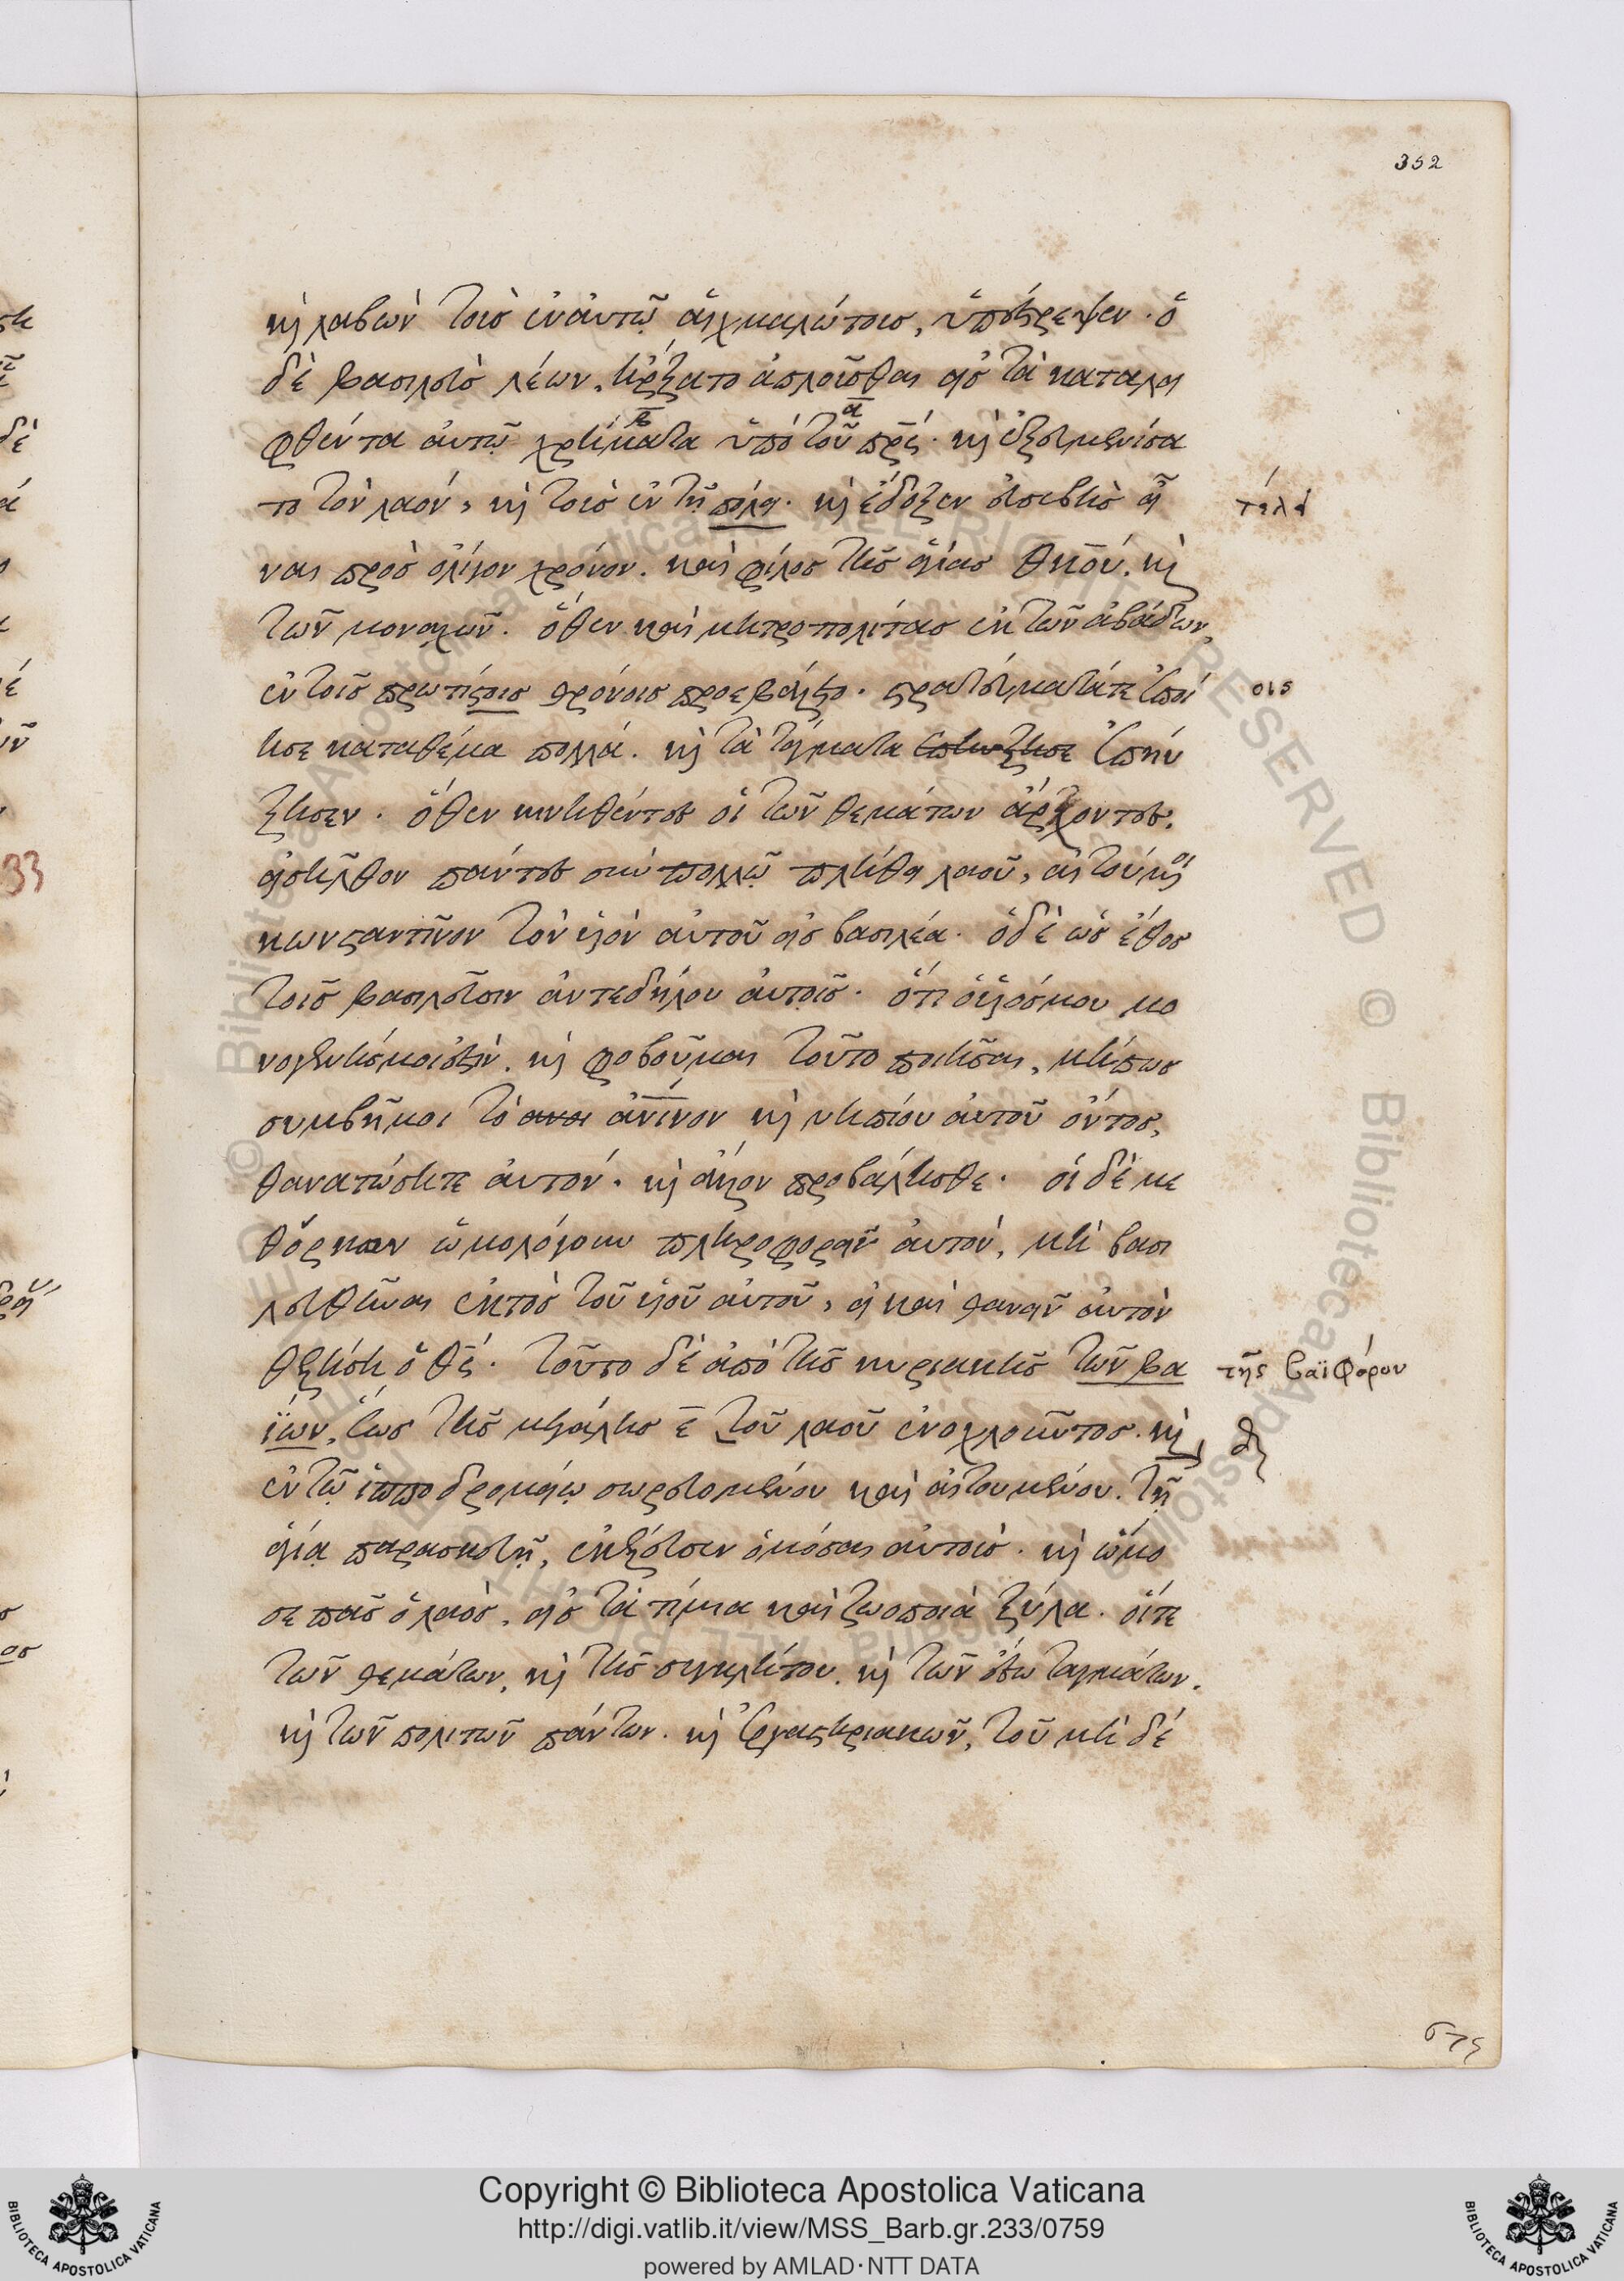 352
καὶ λαβὼν τοὺς ἐν αὐτῷ αἰχμαλώτους, ὑπέστρεψεν. ὁ
δὲ βασιλεὺς λέων, ἤρξατο ἁπλοῦσθαι εἰς τὰ καταλει
φθέντα αὐτῷ χρήματα ὑπὸ τοῦ πρς. καὶ ἐξευμενίσα
το τὸν λαόν, καὶ τοὺς ἐν τῇ πόλει. καὶ ἔδοξεν εὐσεβὴς εἶ
ναι πρὸς ὀλίγον χρόνον. καὶ φίλος τῆς ἁγίας θκου. καὶ
τῶν μοναχῶν. ὅθεν καὶ μητροπολίτας ἐκ τῶν ἀβάδων,
οις
ἐν τοῖς πρωτίστοις θρόνοις προεβάλετο. στρατεύματά τε ἐποί
ησε κατὰ θέμα πολλά. καὶ τὰ τάγματα ἐπηύξησε ἐπηύ
ξησεν. ὅθεν κινηθέντες οἱ τῶν θεμάτων ἄρχοντες,
εἰσῆλθον πάντες σὺν πολλῷ πλήθει λαοῦ, αἰτούμενοι
κωνσταντῖνον τὸν υἱὸν αὐτοῦ εἰς βασιλέα. ὁ δὲ ὡς ἔθος
τοῖς βασιλεῦσιν ἀντεδήλου αὐτοῖς. ὅτι ὁ υἱός μου μο
νογενής μοι ἐστίν. καὶ φοβοῦμαι τοῦτο ποιῆσαι, μήπως
συμβῇ μοι τὸ ανοι ἀνινον καὶ νηπίου αὐτοῦ ὄντος,
θανατώσητε αὐτόν. καὶ ἄλλον προβάλησθε. οἱ δὲ με
θόρκων ὡμολόγουν πληροφορεῖν αὐτόν, μὴ βασι
λευθῆναι ἐκτὸς τοῦ υἱοῦ αὐτοῦ, εἰ καὶ θανεῖν αὐτὸν
θελήσῃ ὁ θς. τοῦτο δὲ ἀπὸ τῆς κυριακῆς τῶν βα
τῆς βαϊφόρου
ΐων, ἕως τῆς μεγάλης ε τοῦ λαοῦ ἐνοχλοῦντος. καὶ
ἐν τῷ ἱπποδρομείῳ σωρευομένου καὶ αἰτουμένου. τῇ
ἁγίᾳ παρασκευῇ, ἐκέλευσεν ὀμόσαι αὐτούς. καὶ ὤμο
σε πᾶς ὁ λαός, εἰς τὰ τίμια καὶ ζωοποιὰ ξύλα. οἵ τε
τῶν θεμάτων, καὶ τῆς συγκλήτου. καὶ τῶν ἔσω ταγμάτων.
καὶ τῶν πολιτῶν πάντων. καὶ ἐργαστηριακῶν, τοῦ μὴ δέ
Copyright © Biblioteca Apostolica Vaticana
http://digi.vatlib.it/view/MSS_Barb.gr.233/0759
powered by AMLAD·NTT DATA